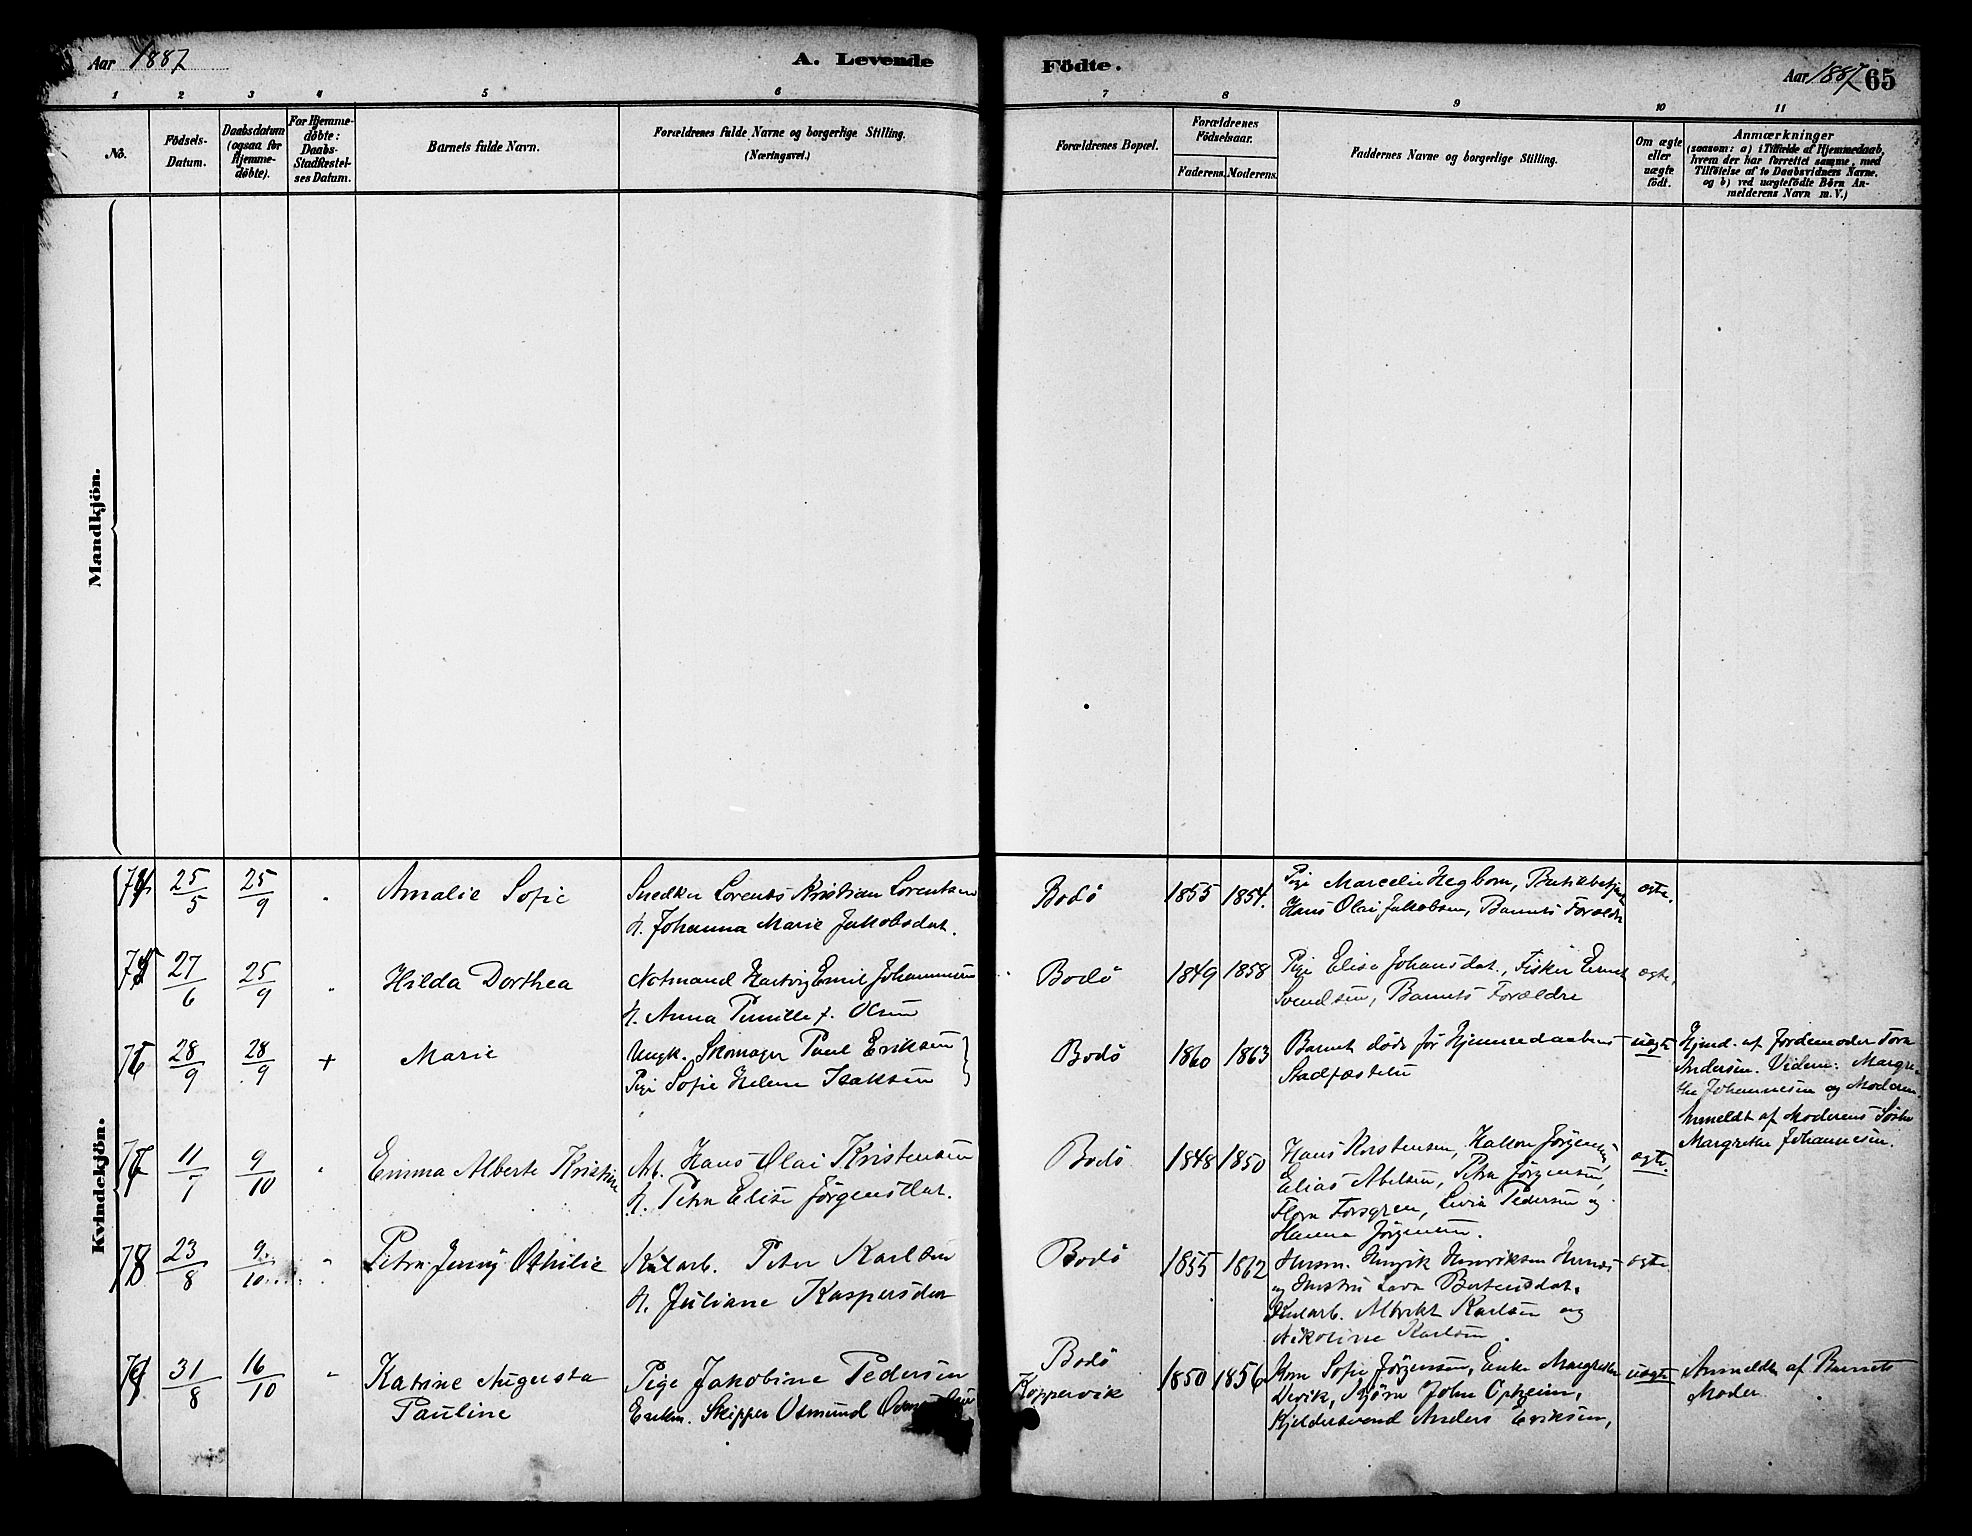 Aar 1887
A. Levende Födte.
Aar 1887 65
1 2 3 4 5 6 7 8 9 10 11
No.
Födsels-Datum.
Daabsdatum (ogsaa for Hjemme-döbte).
For Hjemme-döbte: Daabs-Stadfæstel-ses Datum.
Barnets fulde Navn.
Forældrenes fulde Navne og borgerlige Stilling.
(Næringsvei.)
Forældrenes Bopæl.
Forældrenes Födselsaar.
Faderens. Moderens.
Faddernes Navne og borgerlige Stilling.
Om ægte eller uægte født.
Anmærkninger
(saasom: a) i Tilfælde af Hjemmedaab,
hvem der har forrettet samme, med
Tilføielse af to Daabsvidners Navne.
og b) ved uægtefödte Börn An-
melderens Navn m.V.)
Mandkjön.
Kvindekjön.
74 25/5 25/9 " Amalie Sofie
Snedker Lorents Kristian Lorentsen
H. Johanna Marie Jakobsdat.
Bodö 1855 1854.
Pige Marcelie Hegbom,
Hans Olai Jakobsen, Barnets Forældre
ægte.
75 27/6 25/9 " Hilda Dorthea
Notmand Hartvig Emil Johannesen
H. Anna Pernille f. Olsen
Bodö 1849 1858
Pige Elisa Johansdat., Fisker
Svendsen, Barnets Forældre
ægte.
76 28/9 28/9 + Marie
Ungk. Skomager Paul Eriksen
Pige Sofie Helene Isaksen
Bodö 1860 1863
Barnet døde før Hjemmedaabens
Stadfæstelse
uægte
Hjmd. af Jordemoder Tora
Andersen. Vidner: Margre-
the Johannesen og Moderen.
Anmeldt af Moderens Søster
Margrethe Johannesen.
77 11/7 9/10 " Emma Alberte Kristine
Arb. Hans Olai Kristensen
H. Petra Elise Jørgensdat.
Bodö 1848 1850
Hans Kristensen, Jørgensen,
Elias Abelsen, Petra Jørgensen,
Flora Forsgren, Livia Pedersen og
Hanna Jørgensen.
ægte.
78 23/8 9/10 " Petra Jenny Othilie
Kularb. Peter Karlsen
H. Juliane Kaspersdat
Bodö 1855 1862
Husm. Henrik Henriksen
og Hustru Lava Berteusdat.
Kularb. Albrikt Karlsen og
Nikoline Karlsen.
ægte.
79 31/8 16/10 " Katrine Augusta
Pauline
Pige Jakobine Pedersen
Enkem. Skipper Osmund
Bodö
Koppervik
1850 1856
Kone Sofie Jørgensen, Enke Margrethe
Bjørn John Opheim,
Kjeldersvend Anders Eriksen,
uægte
Anmeldt af Barnets
Moder.